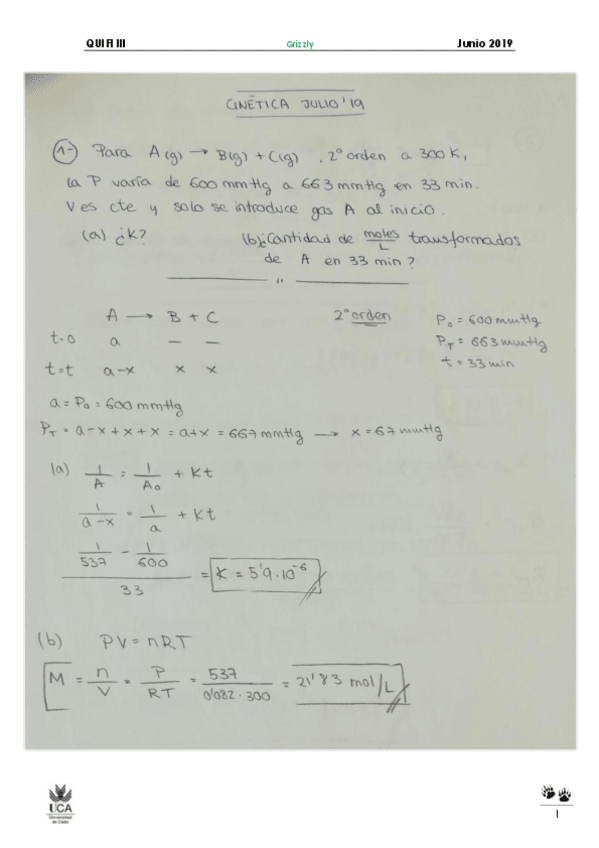 QUIFI III Grizzly Junio 2019
CINÉTICA JULIO'19
1- Para A(g) → B(g) + C(g), 2º orden a 300 K,
la P varía de 600 mmHg a 663 mmHg en 33 min.
V es cte y solo se introduce gas A al inicio.
(a) ¿K? (b) ¿Cantidad de moles/L transformados
de A en 33 min?
"
A → B + C 2º orden P₀ = 600 mmHg
t=0 a — — P_T = 663 mmHg
t=t a-x x x t = 33 min
a = P₀ = 600 mmHg
P_T = a-x+x+x = a+x = 667 mmHg → x = 67 mmHg
(a) 1/A = 1/A₀ + Kt
1/a-x = 1/a + Kt
1/537 - 1/600
/33 = K = 5'9·10⁻⁶
(b) PV = nRT
M = n/V = P/RT = 537/0'082·300 = 21'83 mol/L
UCA
Universidad
de Cádiz
1